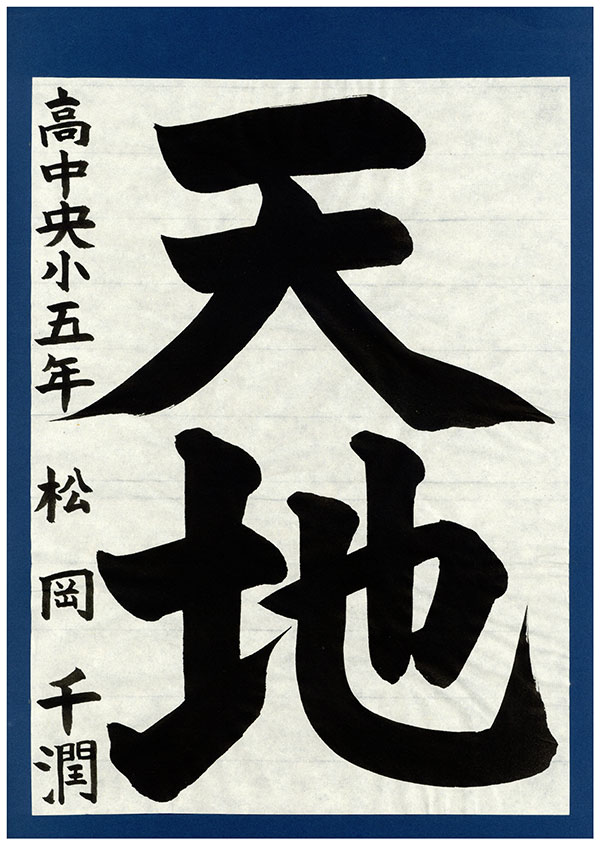 天地
高中央小五年 松岡千潤